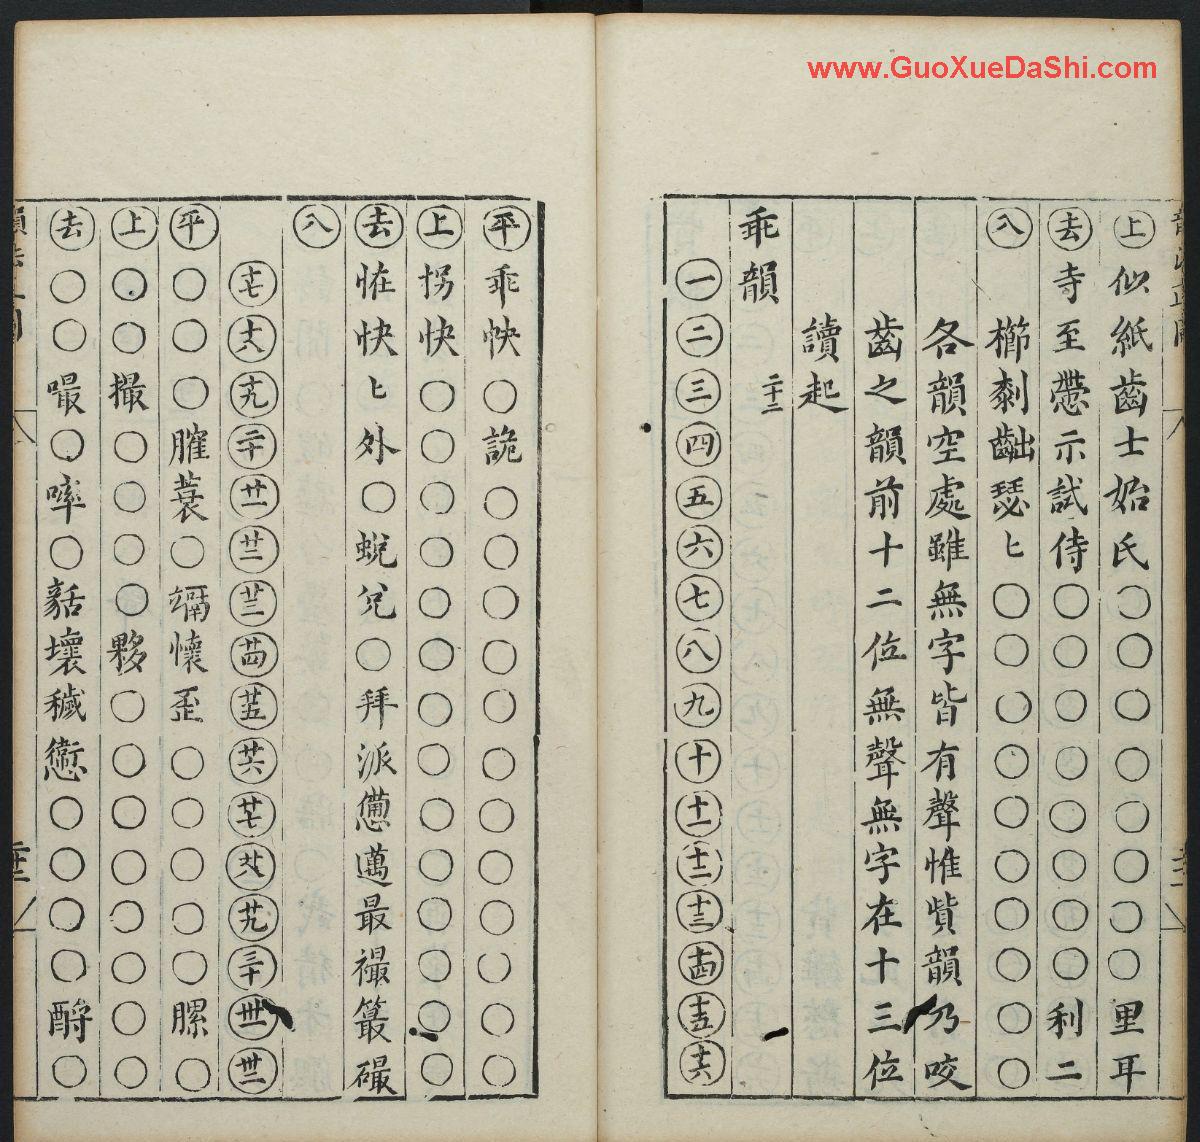 www.GuoXueDaShi.com
㊤似紙齒士始氏○○○○○○○○里耳
㊦去寺至㦅示試侍○○○○○○○○利二
入櫛剩齜瑟匕○○○○○○○○○○
各韻空處雖無字皆有聲惟貲韻乃咬
齒之韻前十二位無聲無字在十三位
讀起
乖韻 二十二
一二三四五六七八九十十一十二十三十四十五十六
平乖㧟○詭○○○○○○○○○○○○
上拐快○○○○○○○○○○○○○○
去恠快匕外○蛻兊○拜派憊邁最襊簺磼
入
十七十八十九二十廿一廿二廿三廿四廿五廿六廿七廿八廿九三十卅一卅二
平○○○膗蓑○竵懷歪○○○○○膘○
上○○撮○○○○夥○○○○○○○○
去○○嘬○啐○䯏壞穢㦣○○○○酹○